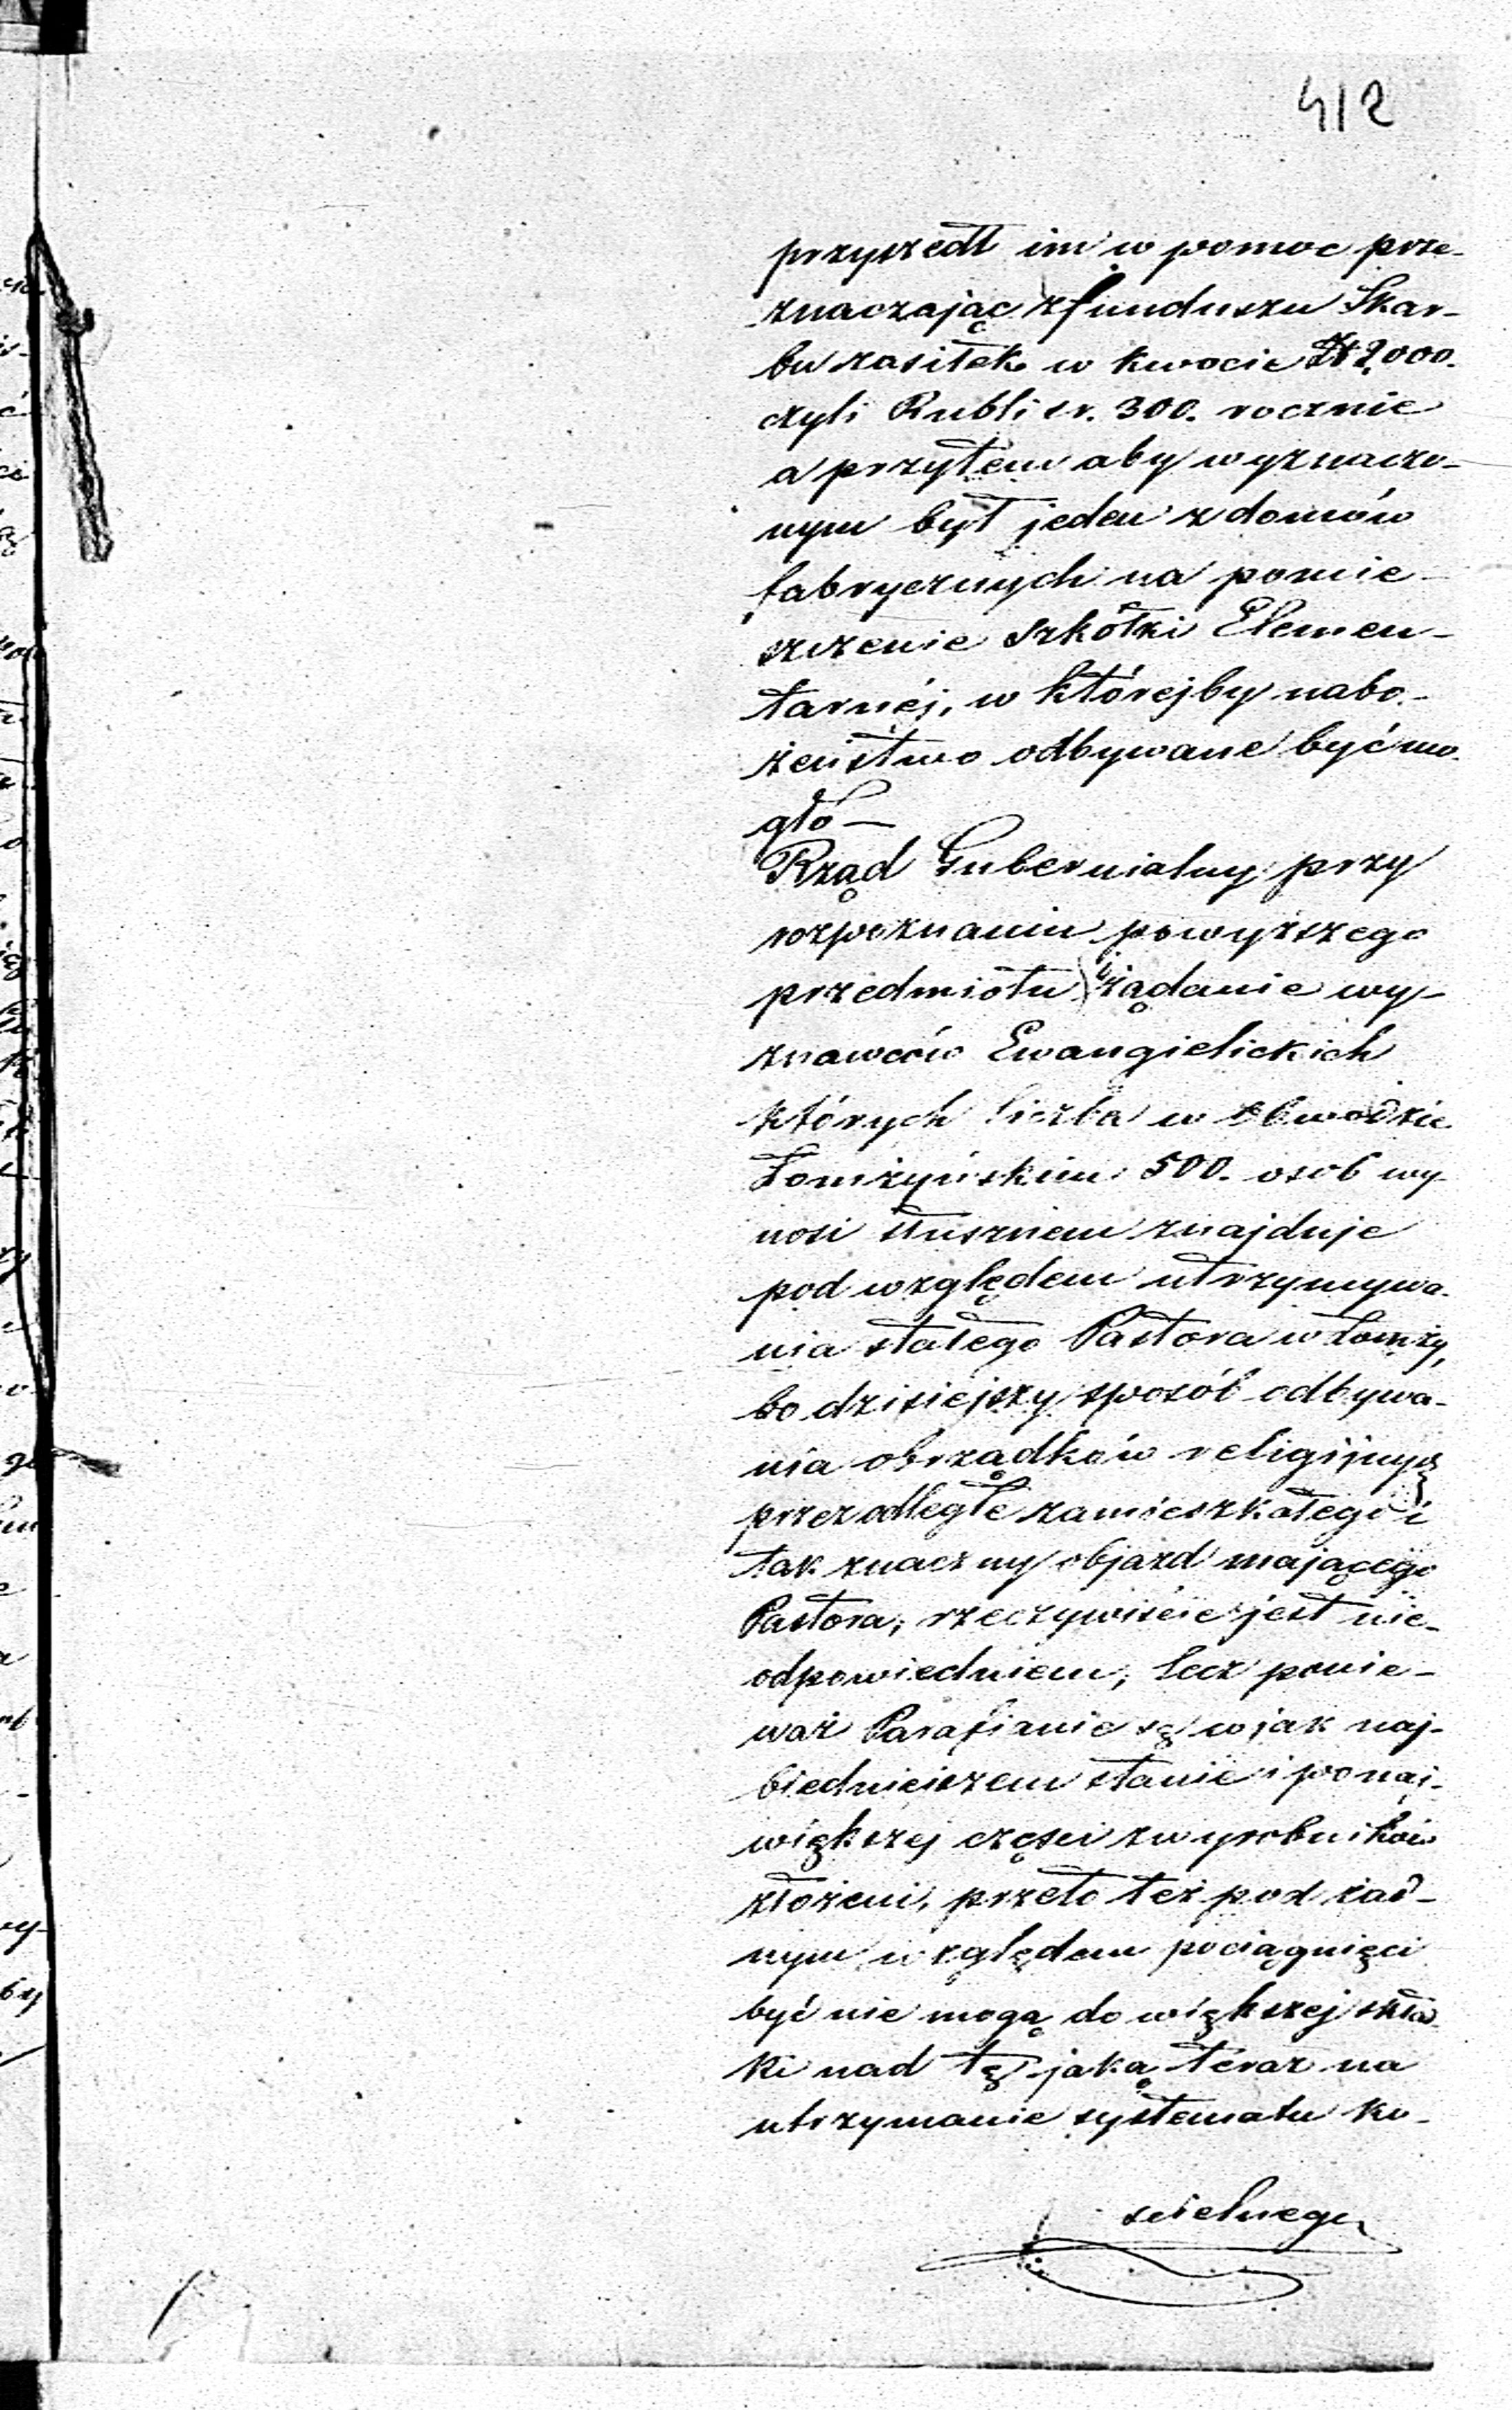 412
przyszedł im w pomoc prze-
znaczając z funduszu Skar-
bu zasiłek w kwocie Zł 2,000.
czyli Rubli sr. 300. rocznie
a przytem aby wyznaczo-
nym był jeden z domów
fabrycznych na pomie-
szczenie Szkółki Elemen-
tarnéj, w którejby nabo-
żeństwo odbywane być mo-
gło —
Rząd Gubernialny przy
rozpoznaniu powyższego
przedmiotu żądanie wy-
znawców Ewangielickich
których liczba w Obwodzie
Łomżyńskim 500. osob wy-
nosi słusznem znajduje
pod względem utrzymywa-
nia stałego Pastora w Łomży,
bo dzisiejszy sposób odbywa-
nia obrządków religijnych
przez odległe zamieszkałego i
tak znaczny objazd mającego
Pastora, rzeczywiście jest nie-
odpowiedniem, lecz ponie-
waż Parafianie są w jak naj-
biedniejszem stanie i po naj-
większej części z wyrobników
złożeni, przeto też pod żad-
nym względem pociągnięci
być nie mogą do większej skła-
ki nad tę jaką teraz na
utrzymanie systematu ko-
ścielnego